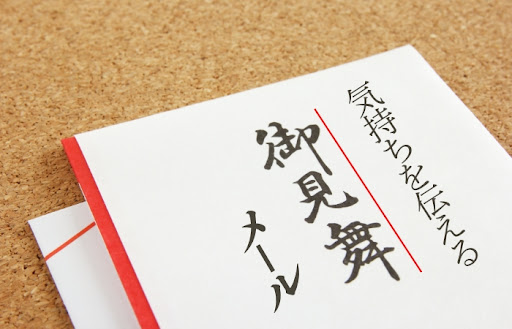 気持ちを伝える
御見舞
メール